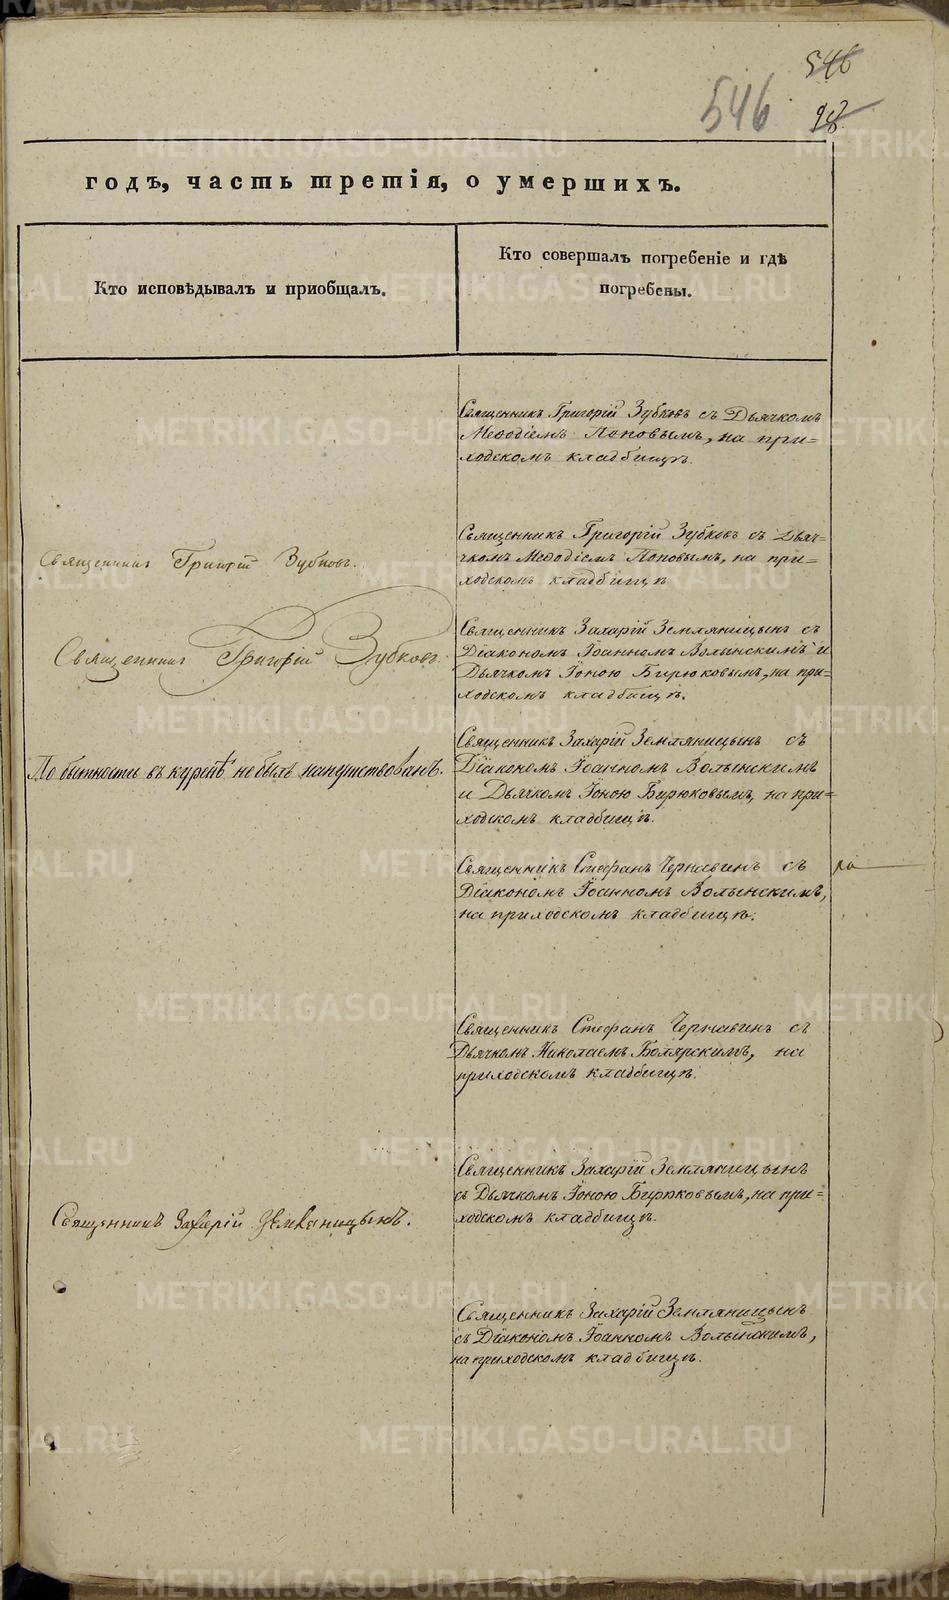 546
546
98
годъ, часть третія, о умершихъ.
Кто исповѣдывалъ и приобщалъ.
Кто совершалъ погребеніе и гдѣ
погребены.
Священникъ Григорій Зубковъ съ Дьячкомъ
Меѳодіемъ Поповымъ, на при=
ходскомъ кладбищѣ.
Священникъ Григорій Зубковъ.
Священникъ Григорій Зубковъ съ Дьяч=
комъ Меѳодіемъ Поповымъ, на при=
ходскомъ кладбищѣ
Священникъ Григорій Зубковъ.
Священникъ Захарій Земляницынъ съ
Діакономъ Іоанномъ Волынскимъ и
Дьячкомъ Іоною Бирюковымъ, на при=
ходскомъ кладбищѣ.
По бытности въ куренѣ не былъ напутствованъ.
Священникъ Захарій Земляницынъ съ
Діакономъ Іоанномъ Волынскимъ
и Дьячкомъ Іоною Бирюковымъ, на при=
ходскомъ кладбищѣ.
Священникъ Стефанъ Чернавинъ съ
Діакономъ Іоанномъ Волынскимъ,
на приходскомъ кладбищѣ.
Священникъ Стефанъ Чернавинъ съ
Дьячкомъ Николаемъ Боярскимъ, на
приходскомъ кладбищѣ.
Священникъ Захарій Земляницынъ.
Священникъ Захарій Земляницынъ
съ Дьячкомъ Іоною Бирюковымъ, на при=
ходскомъ кладбищѣ.
Священникъ Захарій Земляницынъ
съ Діакономъ Іоанномъ Волынскимъ,
на приходскомъ кладбищѣ.
METRIKI.GASO-URAL.RU